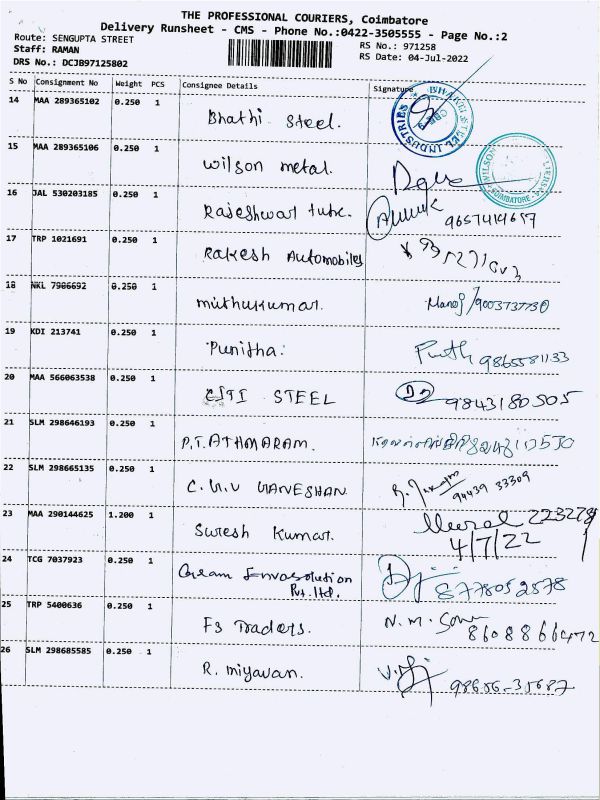 THE PROFESSIONAL COURIERS, Coimbatore
Delivery Runsheet - CMS - Phone No.:0422-3505555 - Page No.:2
Route: SENGUPTA STREET
RS No.: 971258
Staff: RAMAN
RS Date: 04-Jul-2022
DRS No.: DCJB97125802
S No Consignment No Weight PCS Consignee Details Signature
14 MAA 289365102 0.250 1 Bhathi Steel.
15 MAA 289365106 0.250 1 Wilson metal.
WILSON COIMBATORE
16 JAL 530203185 0.250 1 Rajeshwar tube.
17 TRP 1021691 0.250 1 Rakesh Automobiles
18 NKL 7906692 0.250 1 muthukumar. Manoj /9003737730
19 KDI 213741 0.250 1 Punitha. 9865581133
20 MAA 566063538 0.250 1 CITI STEEL 9843180505
21 SLM 298646193 0.250 1 P.T.ATHMARAM.
22 SLM 298665135 0.250 1 GANESHAN 94439 33309
23 MAA 290144625 1.200 1 Suresh Kumar. 4/7/22
24 TCG 7037923 0.250 1 Pvt.ltd. 8778052578
25 TRP 5400636 0.250 1 FS Traders. N.M.
26 SLM 298685585 0.250 1 R. miyavan. 98656-35687